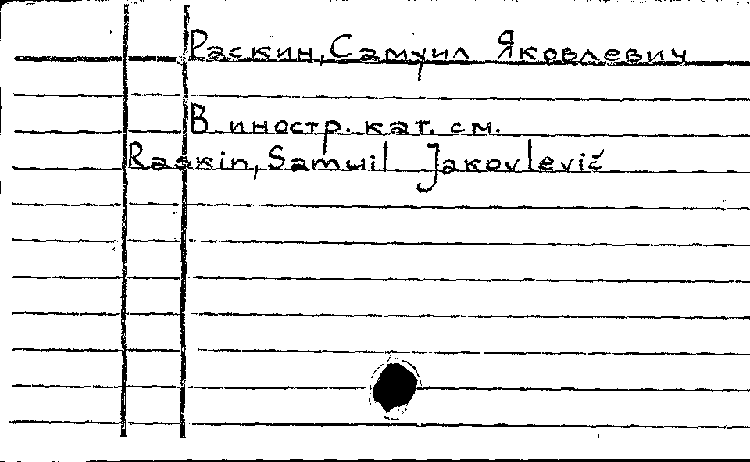 Раскин, Самуил Яковлевич
В иностр. кат. см.
Raskin, Samuil Jakovlevič